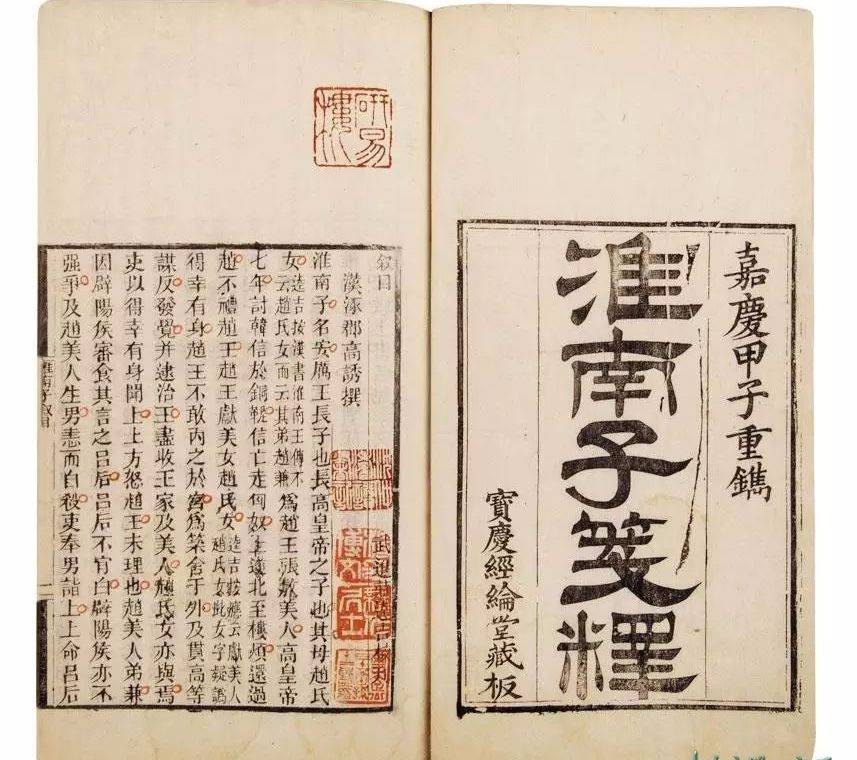 嘉慶甲子重鐫
淮南子箋釋
寶慶經綸堂藏板
研易樓
叙目
漢涿郡高誘撰
武進莊逵吉校刊
淮南子名安厲王長子也長高皇帝之子也其母趙氏
女逵吉按漢書淮南王傳不云趙氏女而云其弟趙兼爲趙王張敖美人高皇帝
七年討韓信於銅鞮信亡走匈奴上遂北至樓煩還過
趙不禮趙王趙王獻美女趙氏女逵吉按應云獻美人趙氏女此女字疑譌
得幸有身趙王不敢内之於宮爲築舍于外及貫高等
謀反發覺并逮治王盡收王家及美人趙氏女亦與焉
吏以得幸有身聞上上方怒趙王未理也趙美人弟兼
因辟陽侯審食其言之呂后呂后不肎白辟陽侯亦不
强爭及趙美人生男恚而自殺吏奉男詣上上命呂后
淮南子叙目
一